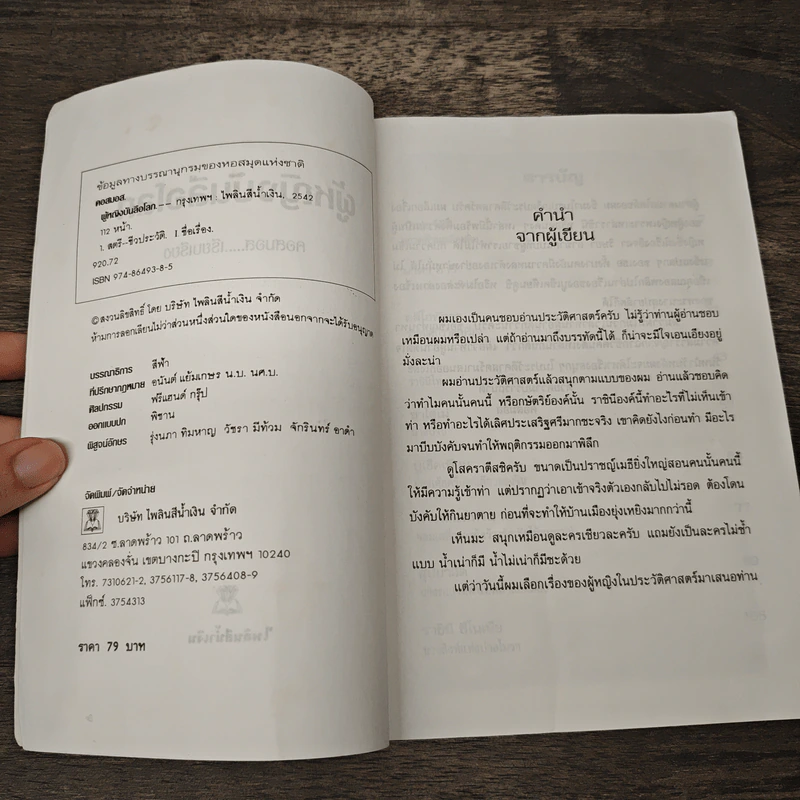 ข้อมูลทางบรรณานุกรมของหอสมุดแห่งชาติ
คอสมอส.
ผู้หญิงบันลือโลก.-- กรุงเทพฯ : ไพลินสีน้ำเงิน, 2542
112 หน้า.
1. สตรี--ชีวประวัติ. I. ชื่อเรื่อง.
920.72
ISBN 974-86493-8-5
© สงวนลิขสิทธิ์ โดย บริษัท ไพลินสีน้ำเงิน จำกัด
ห้ามการลอกเลียนไม่ว่าส่วนหนึ่งส่วนใดของหนังสือนอกจากจะได้รับอนุญาต
บรรณาธิการ สีฟ้า
ที่ปรึกษากฎหมาย อนันต์ แย้มเกษร น.บ. นศ.บ.
ศิลปกรรม ฟรีแฮนด์ กรุ๊ป
ออกแบบปก พิชาน
พิสูจน์อักษร รุ่งนภา ทิมหาญ วัชรา มีท้วม จักรินทร์ อาดำ
จัดพิมพ์/จัดจำหน่าย
บริษัท ไพลินสีน้ำเงิน จำกัด
834/2 ซ.ลาดพร้าว 101 ถ.ลาดพร้าว
แขวงคลองจั่น เขตบางกะปิ กรุงเทพฯ 10240
โทร. 7310621-2, 3756117-8, 3756408-9
แฟ็กซ์. 3754313
ราคา 79 บาท
คำนำ
จากผู้เขียน
ผมเองเป็นคนชอบอ่านประวัติศาสตร์ครับ ไม่รู้ว่าท่านผู้อ่านชอบ
เหมือนผมหรือเปล่า แต่ถ้าอ่านมาถึงบรรทัดนี้ได้ ก็น่าจะมีใจเอนเอียงอยู่
มั่งละน่า
ผมอ่านประวัติศาสตร์แล้วสนุกตามแบบของผม อ่านแล้วชอบคิด
ว่าทำไมคนนั้นคนนี้ หรือกษัตริย์องค์นั้น ราชินีองค์นี้ทำอะไรที่ไม่เห็นเข้า
ท่า หรือทำอะไรได้เลิศประเสริฐศรีมากซะจริง เขาคิดยังไงก่อนทำ มีอะไร
มาบีบบังคับจนทำให้พฤติกรรมออกมาพิลึก
ดูโสคราตีสซิครับ ขนาดเป็นปราชญ์เมธียิ่งใหญ่สอนคนนั้นคนนี้
ให้มีความรู้เข้าท่า แต่ปรากฏว่าเอาเข้าจริงตัวเองกลับไปไม่รอด ต้องโดน
บังคับให้กินยาตาย ก่อนที่จะทำให้บ้านเมืองยุ่งเหยิงมากกว่านี้
เห็นมะ สนุกเหมือนดูละครเชียวละครับ แถมยังเป็นละครไม่ซ้ำ
แบบ น้ำเน่าก็มี น้ำไม่เน่าก็มีซะด้วย
แต่ว่าวันนี้ผมเลือกเรื่องของผู้หญิงในประวัติศาสตร์มาเสนอท่าน